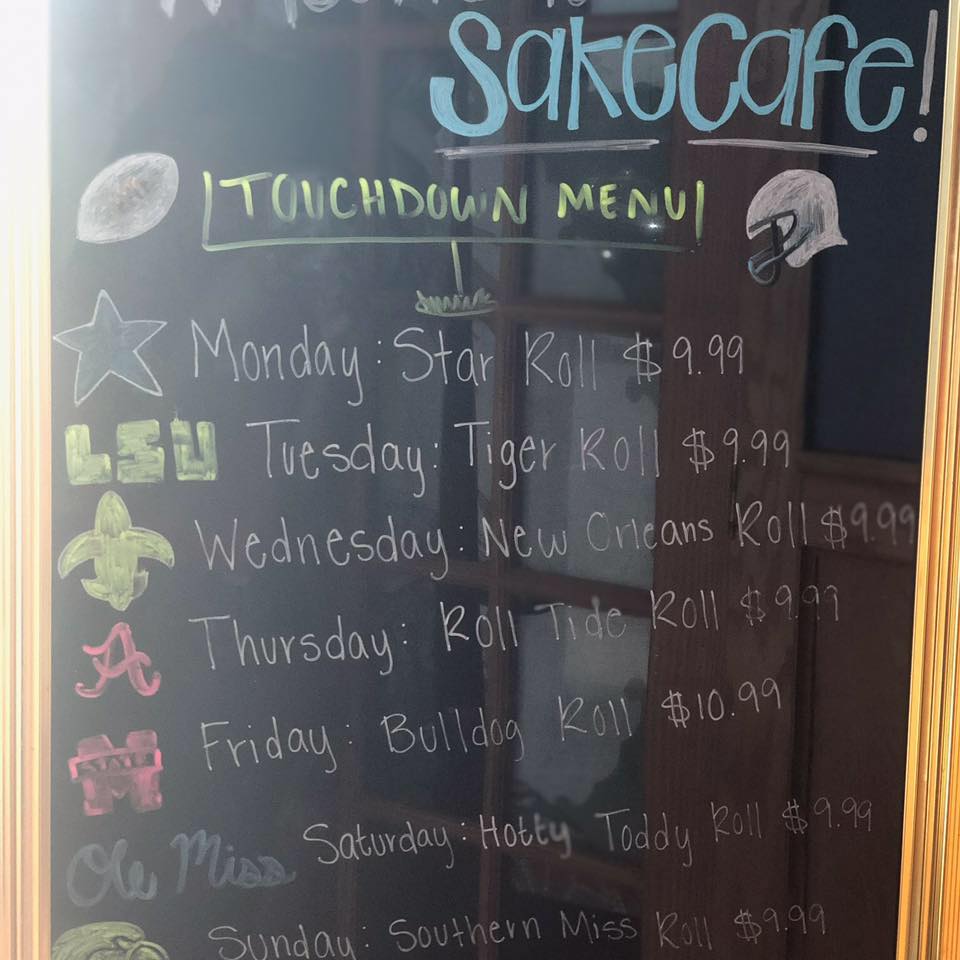 SakeCafe!
TOUCHDOWN MENU
Monday: Star Roll $9.99
LSU Tuesday: Tiger Roll $9.99
Wednesday: New Orleans Roll $9.99
A Thursday: Roll Tide Roll $9.99
M Friday: Bulldog Roll $10.99
Ole Miss Saturday: Hotty Toddy Roll $9.99
Sunday: Southern Miss Roll $9.99